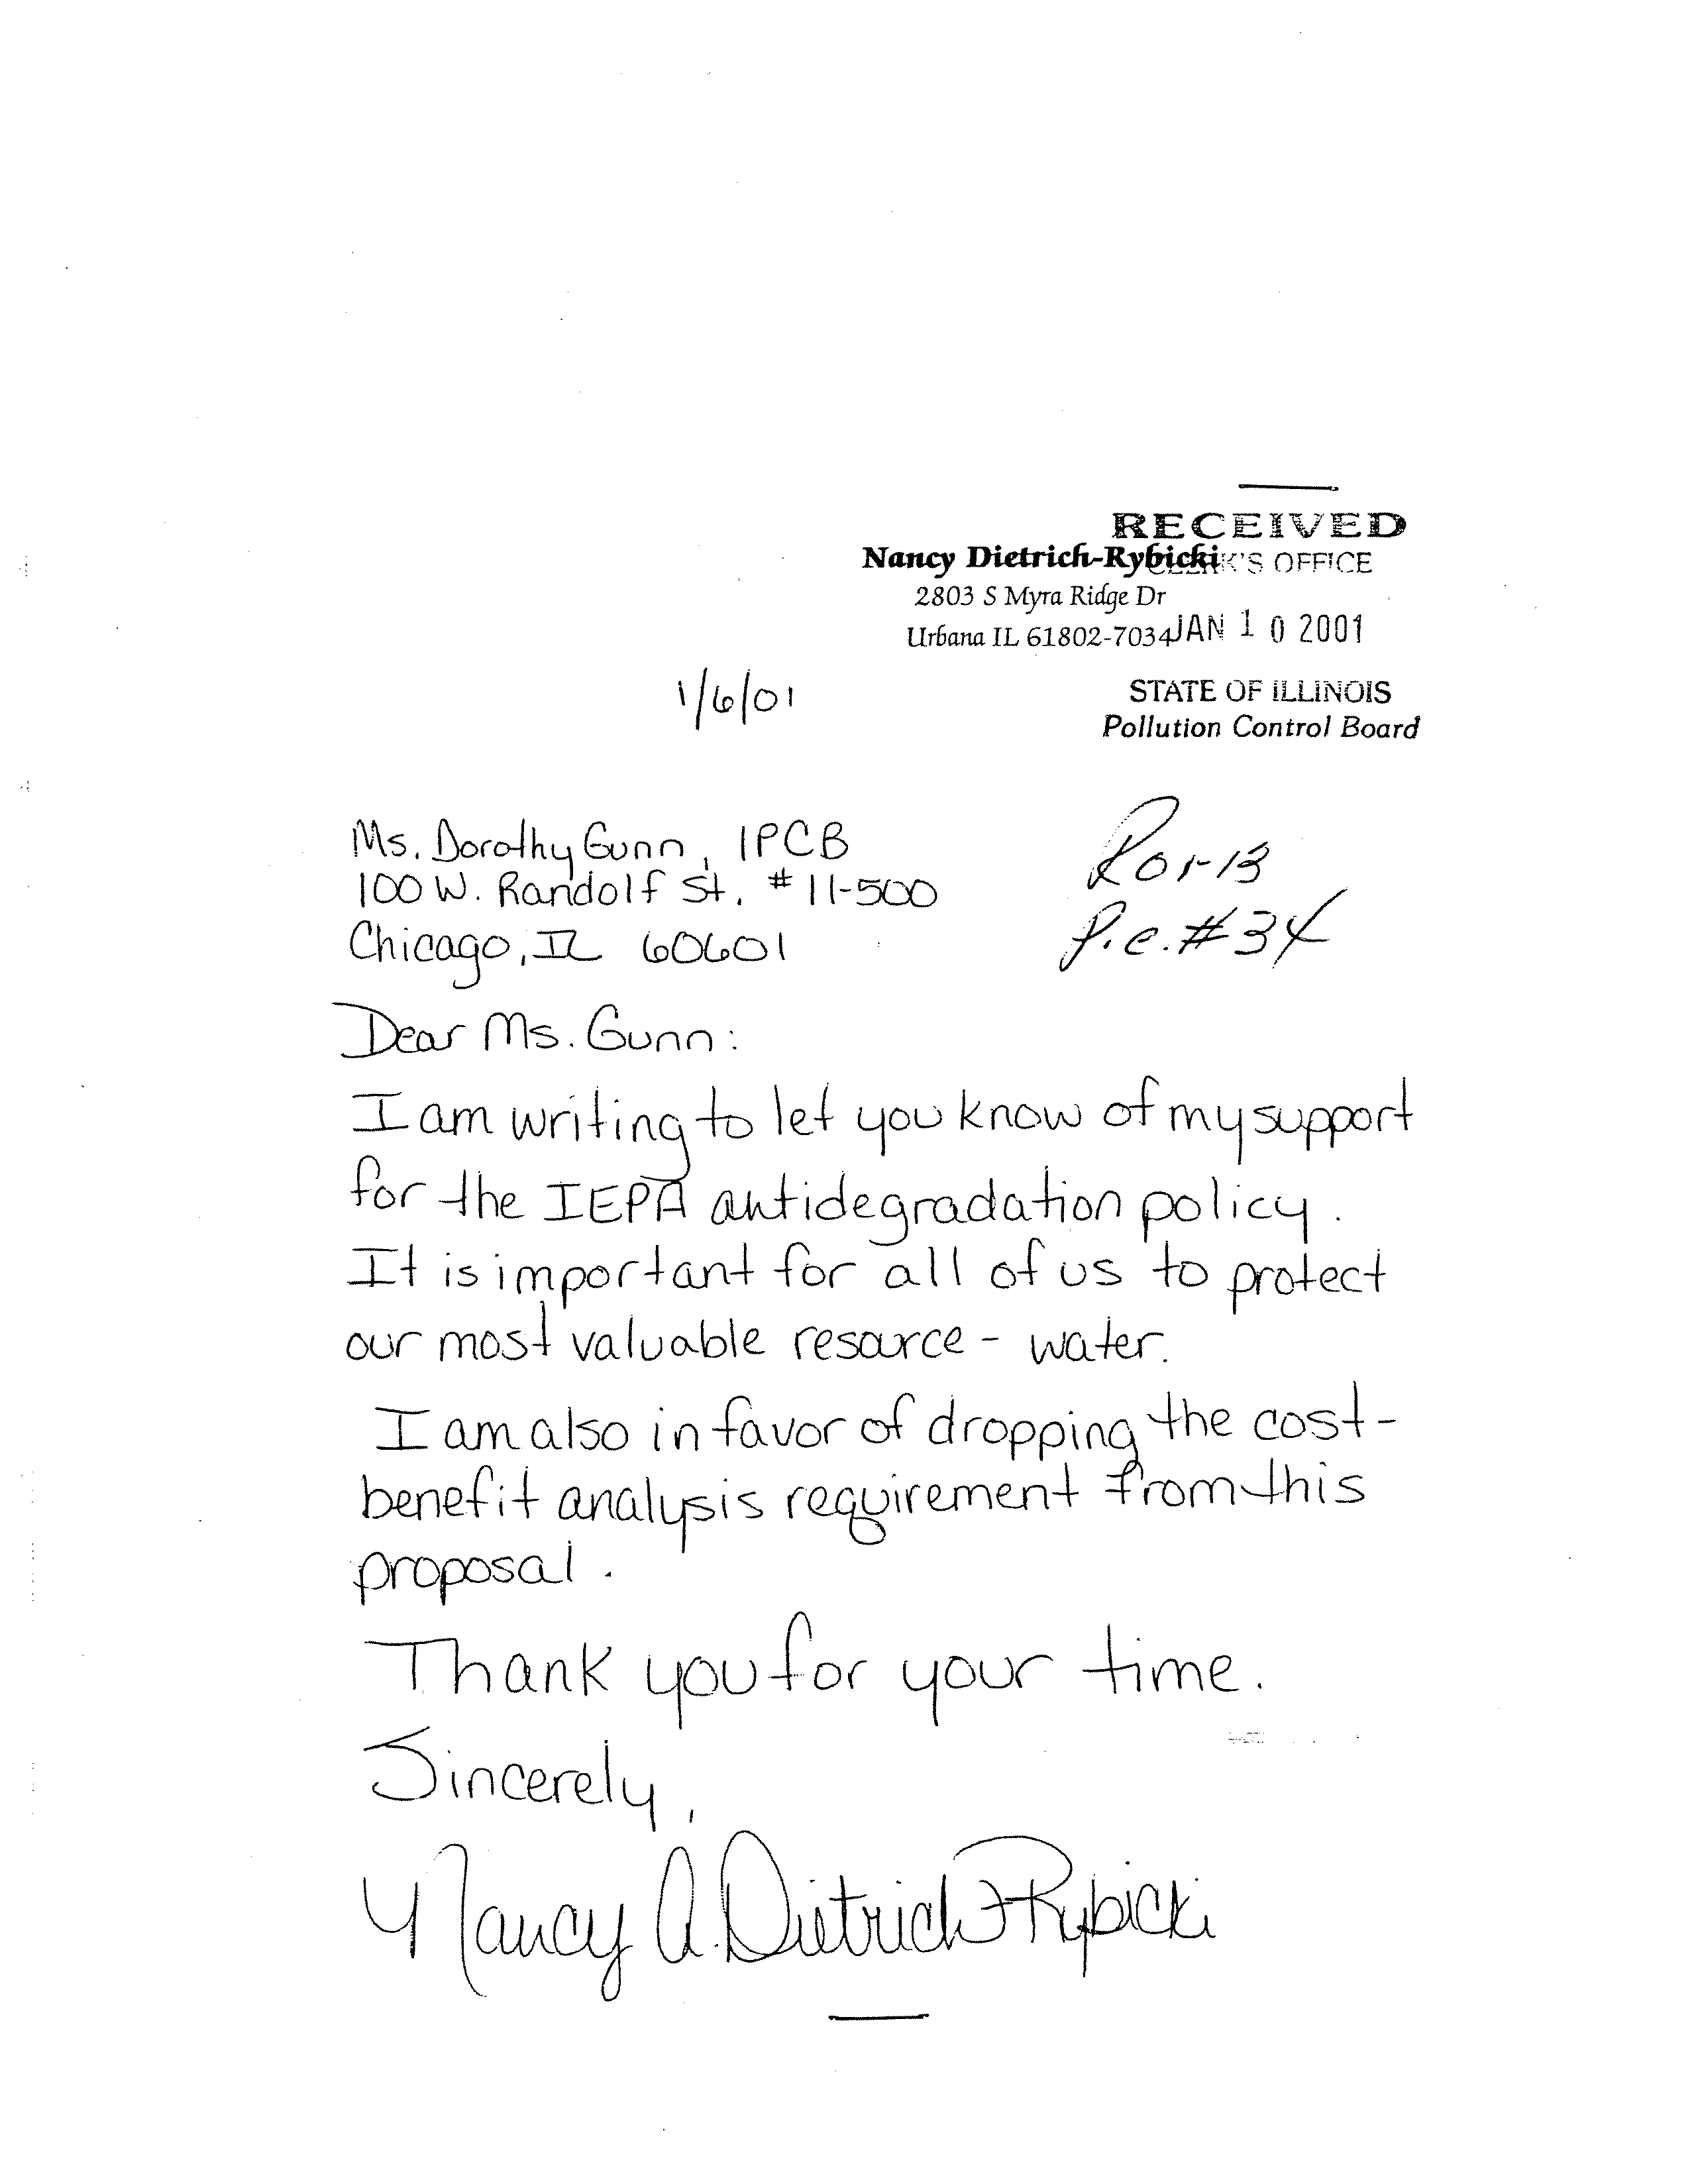 RECEIVED
CLERK'S OFFICE
Nancy Dietrich-Rybicki
2803 S Myra Ridge Dr
Urbana IL 61802-7034
JAN 10 2001
STATE OF ILLINOIS
Pollution Control Board
1/6/01
Ms. Dorothy Gunn, IPCB
100 W. Randolf St. #11-500
Chicago, IL 60601
R01-13
P.C. #34
Dear Ms. Gunn:
I am writing to let you know of my support
for the IEPA antidegradation policy.
It is important for all of us to protect
our most valuable resource - water.
I am also in favor of dropping the cost-
benefit analysis requirement from this
proposal.
Thank you for your time.
Sincerely,
Nancy A. Dietrich-Rybicki